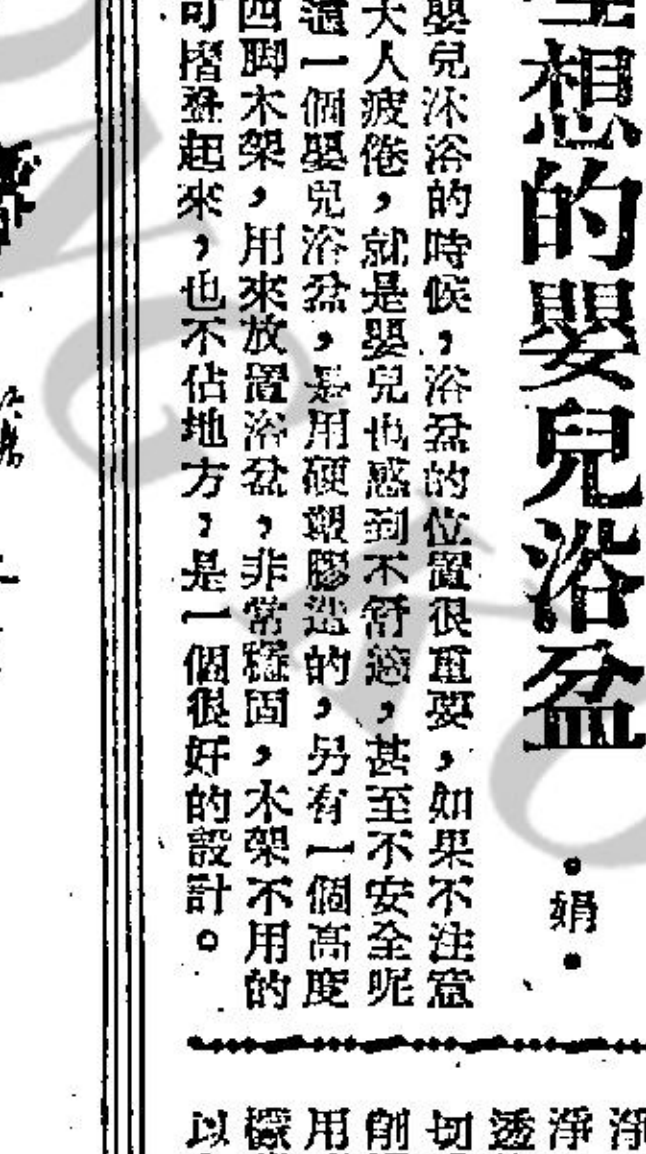 想的嬰兒浴盆
•娟•
嬰兒沐浴的時候，浴盆的位置很重要，如果不注意
大人疲倦，就是嬰兒也感到不舒適，甚至不安全呢
一個嬰兒浴盆，是用硬塑膠造的，另有一個高度
四脚木架，用來放置浴盆，非常穩固，木架不用的
可摺叠起來，也不佔地方，是一個很好的設計。
淨
淨
透
切
削
用
檬
以